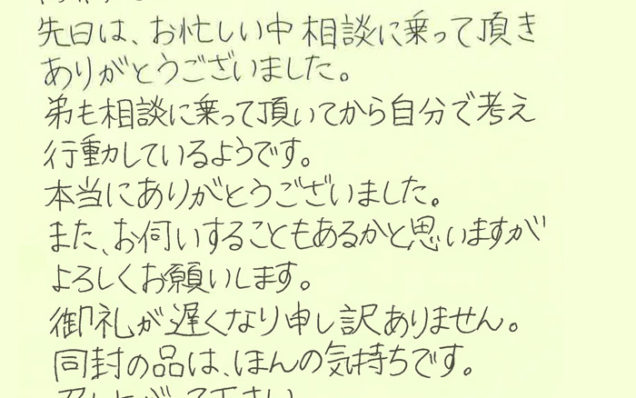 先日は、お忙しい中相談に乗って頂き
ありがとうございました。
弟も相談に乗って頂いてから自分で考え
行動しているようです。
本当にありがとうございました。
また、お伺いすることもあるかと思いますが
よろしくお願いします。
御礼が遅くなり申し訳ありません。
同封の品は、ほんの気持ちです。